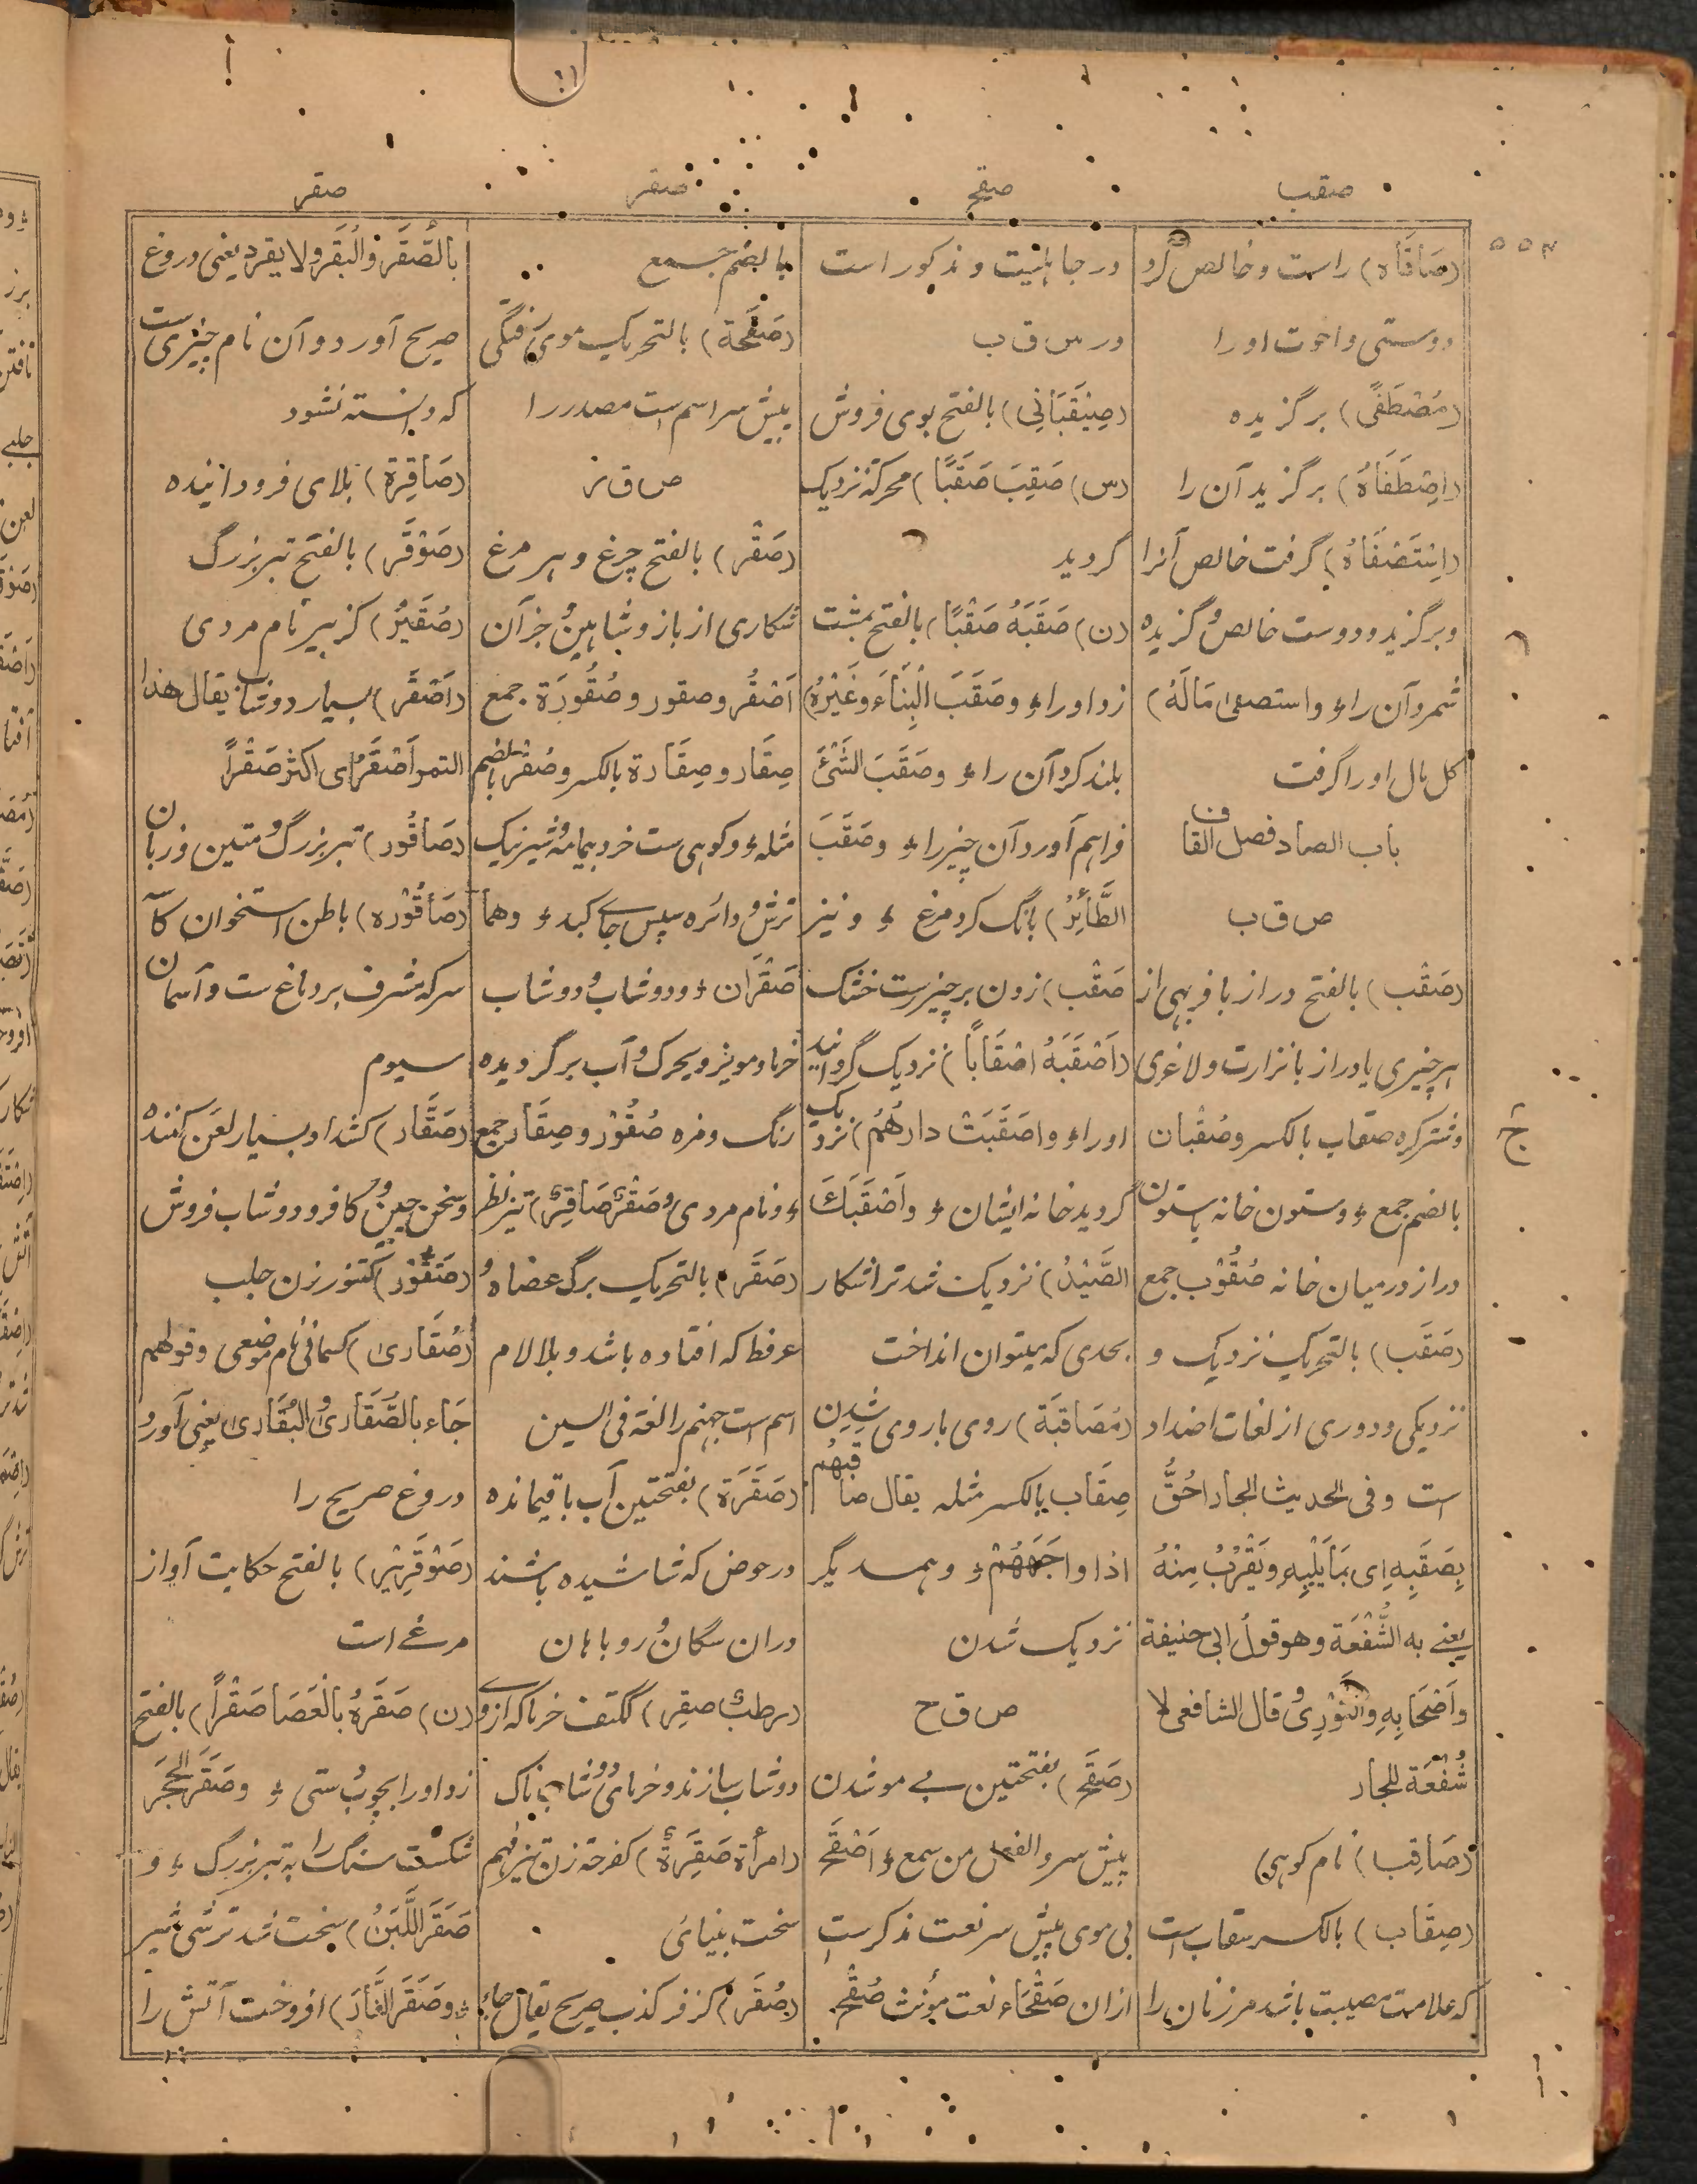 صقب
صقح
صقر
صقر
(صَافَاه) راست و خالص کرد
دوستی واخوت اورا
(مُصْطَفًی) برگزیده
(اِصْطَفَاهُ) برگزید آن را
(اِسْتَصْفَاهُ) گرفت خالص آنرا
و برگزید و دوست خالص و گزیده
شمرد آن را ء واستصفی مَالَهُ)
کل مال اورا گرفت
باب الصاد فصل القاف
ص ق ب
(صَقْب) بالفتح دراز با فربهی از
هر چیزی یا دراز با نزارت و لاغری
و شتر کره صقاب بالکسر و صُقْبان
بالضم جمع ء و ستون خانه یا ستون
دراز در میان خانه صُقُوْب جمع
(صَقَب) بالتحریک نزدیک و
نزدیکی و دوری از لغات اضداد
است وفی الحدیث الجار احَقُّ
بِصَقَبِهِ ای بمَا یَلِیْهِ و یَقْرُبُ مِنْهُ
یعنے به الشُّفْعَة و هو قول ابی حنیفة
و اَصْحَابِهِ و الثَّوْرِیُ و قال الشافعی لا
شُفْعَة للجار
(صَاقِب) نام کوهی
(صِقَاب) بالکسر سقاب است
که علامت مصیبت باشد مر زنان را
در جابانیت و مذکور است
در س ق ب
(صِیْقَبَانِی) بالفتح بوی فروش
(س) صَقِبَ صَقَبًا) محرکةً نزدیک
گردید
(ن) صَقَبَهُ صَقْبًا) بالفتح بمشت
زد اورا ء و صَقَبَ الْبِنَاءَ وغَیْرَهُ)
بلند کرد آن را ء و صَقَبَ الشَّیْئَ
فراهم آورد آن چیز را ء و صَقَبَ
الطَّائِرُ) بانگ کرد مرغ ء و نیز
صَقْب) زدن بر چیز سخت خشک
(اَصْقَبَهُ اصْقَاباً) نزدیک گردانید
اورا ء واصَقَبَتْ دارهُمُ) نزدیک
گردید خانه ایشان ء و اَصْقَبَکَ
الصَّیْدُ) نزدیک شد ترا شکار
بحدی که میتوان انداخت
(مُصَاقبَة) روی با روی شدن
صِقَاب بالکسر مثله یقال صاقبهُم
اذا واجَهَهُمْ ء و همسدیگر
نزدیک شدن
ص ق ح
(صَقَح) بفتحتین بے مو شدن
پیش سر و الفعل من سمع ء اَصْقَح
بی موی پیش سر نعت مذکرست
ازان صَقْحَاء نعت مؤنث صُقْح
بالضم جمع
(صَقَحَة) بالتحریک موی رفتگی
پیش سر اسم است مصدر را
ص ق ر
(صَقْر) بالفتح چرغ و هر مرغ
شکاری از باز و شاهین و جز آن
اَصْقُر و صقور و صُقُورَة جمع
صِقَار و صِقَارة بالکسر و صُقْر بالضم
مثله ء و کوهی ست خرد بیمامه و شیر نیک
ترش و دائره سپس جاے کبد ء وهما
صَقْرَان ء و دوشاب و دوشاب
خرما و مویز و یحرک و آب برگردیده
رنگ و مزه صُقُوْر و صِقَار جمع
ء و نام مردی و صَقْرٌ صَاقِرٌ) تیز نظر
(صَقَر) بالتحریک برگ عضاه و
عرفط که افتاده باشد و بلا لام
اسم است جهنم را لغة فی السین
(صَقَرَة) بفتحتین آب باقیمانده
در حوض که شاشیده باشند
دران سگان و روباهان
(رطبٌ صقِر) ککتف خرما که ازوے
دوشاب سازند و خرمای دوشاب ناک
(امرأة صَقِرَةٌ) کفرحة زن تیزفهم
سخت بینائی
(صُقَر) کزفر کذب صریح یقال جاء
بالصُّقَر والْبُقَر ولا یقرد یعنی دروغ
صریح آورد و آن نام چیزی ست
که دانسته نشود
(صَاقِرَة) بلای فرود آینده
(صَوْقَر) بالفتح تبر بزرگ
(صُقَیْر) کزبیر نام مردی
(اَصْقَر) بسیار دوشاب یقال هذا
التمر اَصْقَرُ ای اکثر صَقْراً
(صَاقُور) تبر بزرگ و متین و زبان
(صَاقُوْرَه) باطن استخوان کاسه
سر که مشرف بر دماغ ست و آسمان
سیوم
(صَقَّار) کشداد بسیار لعن کننده
و سخن چین و کافر و دوشاب فروش
(صَقُّوْر) کتنور زن جلب
(صُقَاریٰ) کسمانی نام موضعی و قولهم
جَاء بالصُّقَاریٰ و البُقَاریٰ یعنی آورد
دروغ صریح را
(صَوْقَرِیْر) بالفتح حکایت آواز
مرغے است
(ن) صَقَرَهُ بالْعَصَا صَقْراً) بالفتح
زد اورا بچوب ستی ء و صَقَرَ الحَجَر
شکست سنگ را به تبر بزرگ ء و
صَقَرَ اللَّبَنُ) سخت شد ترشی شیر
ء و صَقَرَ النَّارَ) افروخت آتش را